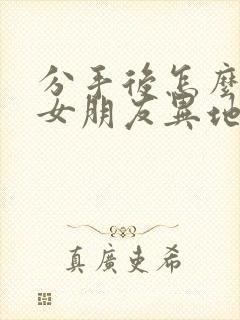 分手後怎麼
女朋友異地
真廣吏希